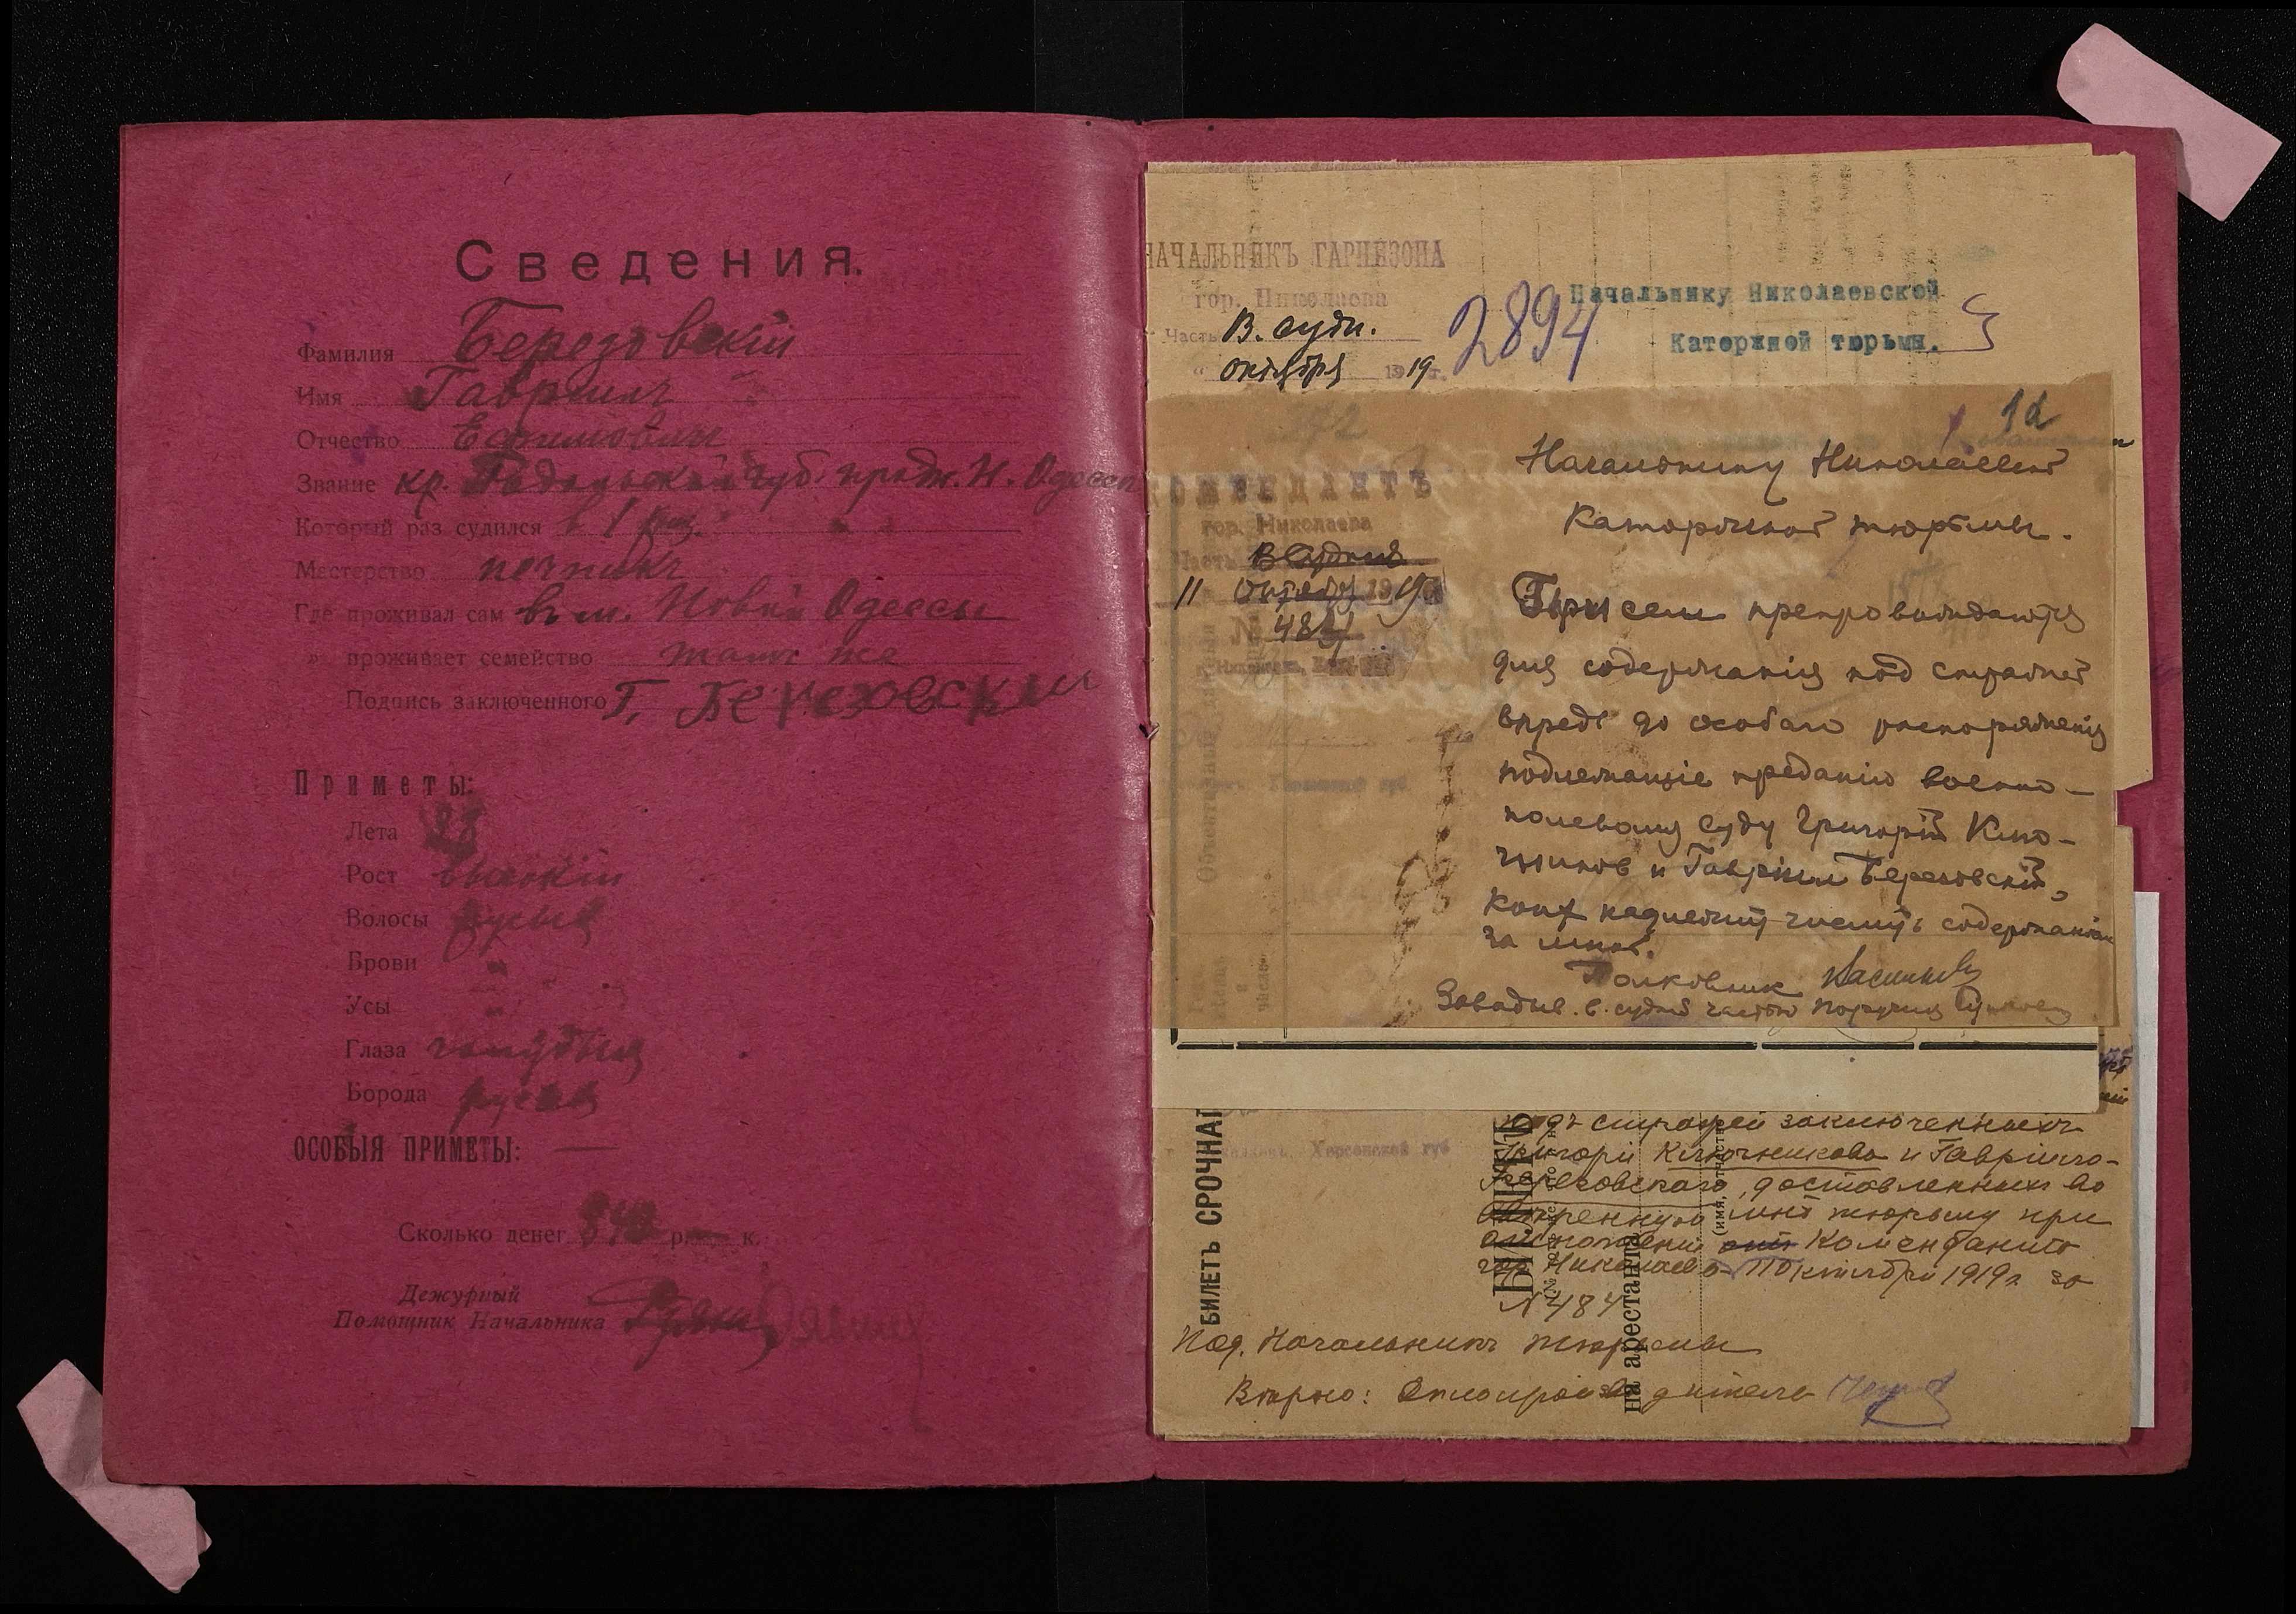 Сведения.
Фамилия Березовскій
Имя Гавриилъ
Отчество Ефимовичъ
Звание кр. Подольской губ. прож. Н. Одесса
Который раз судился в 1 раз.
Мастерство печникъ
Где проживал сам въ м. Новой Одессы
» проживает семейство тамъ же
Подпись заключенного Г. Березовский
Приметы:
Лета 38
Рост высокій
Волосы русые
Брови "
Усы "
Глаза голубыя
Борода русая
ОСОБЫЯ ПРИМЕТЫ: —
Сколько денег 840 р. — к.
Дежурный
Помощник Начальника
НАЧАЛЬНИКЪ ГАРНИЗОНА
гор. Николаева
Часть В. судн.
" октября 1919 г.
2894
Начальнику Николаевской
Каторжной тюрьмы.
КОМЕНДАНТЪ
гор. Николаева
Часть В Судная
11 Октября 1919
№ 484
Начальнику Николаевской
Каторжной тюрьмы.
При сем препровождаются
для содержанія под стражей
впредь до особаго распоряженія
подлежащіе преданію военно-
полевому суду Григорій Клю-
чников и Гавріил Березовскій,
коих надлежит числить содержанием
за мной.
Полковник
Заведыв. в. судной частью Поручик
БИЛЕТЪ СРОЧНАГ
Херсонской губ
БИЛЕТЪ
на арестанта
(имя, отчество
подъ стражей заключенныхъ
Григорія Ключникова и Гавріила
Березовскаго, доставленныхъ во
ввѣренную мнѣ тюрьму при
отношеніи Коменданта
гор Николаева 11 октября 1919 г за
№ 484
Под. Начальникъ тюрьмы
Вѣрно: Делопроизводитель